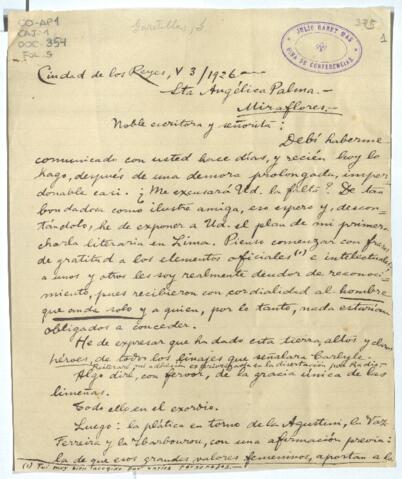 CO-AP1
CAJ-1
DOC-354
FOL. 5
375
1
JULIO GARET MAS
GIRA DE CONFERENCIAS
Ciudad de los Reyes, V 3/1926
Sta Angélica Palma.-
Miraflores.-
Noble escritora y señorita:
Debí haberme
comunicado con usted hace días, y recién hoy lo
hago, después de una demora prolongada, imper
donable casi. ¿Me excusará Ud. la falta? De tan
bondadosa como ilustre amiga, eso espero y, descon-
tándolo, he de exponer a Ud. el plan de mi primera
charla literaria en Lima. Pienso comenzar con frases
de gratitud a los elementos oficiales (1) e intelectuales
a unos y otros les soy realmente deudor de reconoci-
miento, pues recibieron con cordialidad al hombre
que anda solo y a quien, por lo tanto, nada estarían
obligados a conceder.
He de expresar que ha dado esta tierra, altos, y claros
héroes de todos los linajes que señalara Carlyle.
Reiteraré mi adhesión exteriorizada en la disertación por Radio.-
Algo diré, con fervor, de la gracia única de las
limeñas.
Todo ello en el exordio.
Luego: la plática en torno de la Agustini, la Vaz
Ferreira y la Ibarbourou, con una afirmación previa:
la de que esos grandes valores femeninos, aportan a la
(1) Fui muy bien acogido por varios personajes.-